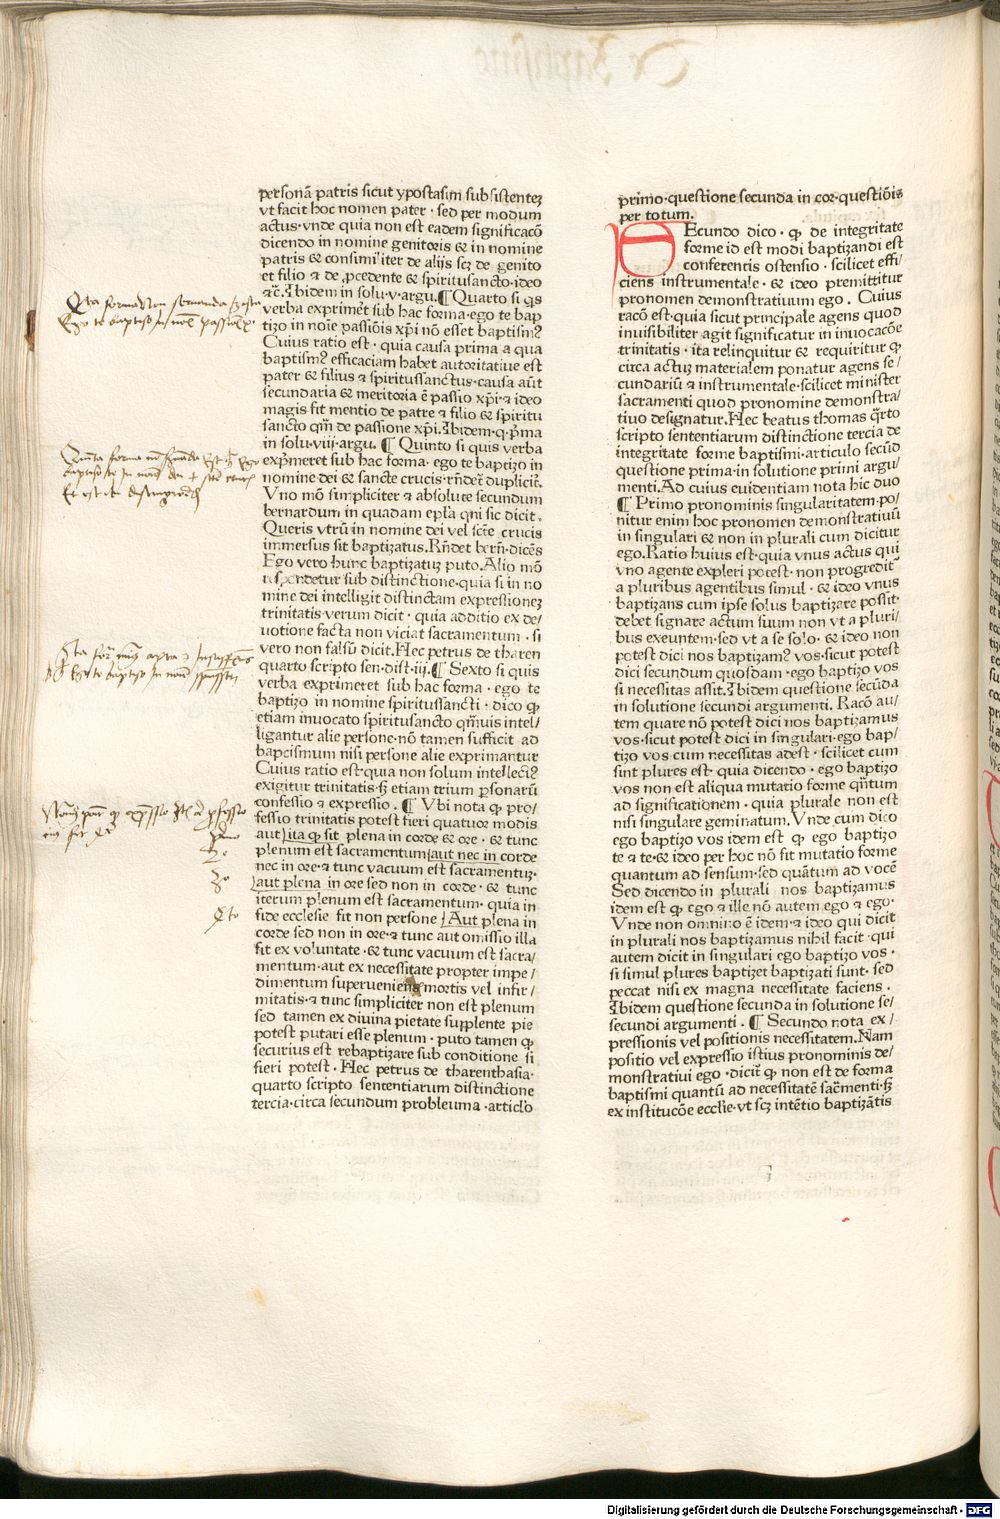 personā patris sicut ypostasim subsistentez
vt facit hoc nomen pater · sed per modum
actus·vnde quia non est eadem significacō
dicendo in nomine genitoris & in nomine
patris & consimiliter de alijs scz de genito
et filio ⁊ de ꝓcedente & spiritusancto·ideo
⁊c̄.Ibidem in solu·v·argu.¶ Quarto si qͥs
verba exprimer̄t sub hac forma·ego te bap
tizo in noīe passiōis xp̄i nō esset baptism9
Cuius ratio est · quia causa prima a qua
baptism9 efficaciam habet autoritatiue est
pater & filius ⁊ spiritussanctus·causa aūt
secundaria & meritoria ē passio xp̄i·⁊ ideo
magis fit mentio de patre ⁊ filio & spiritu
sancto qm̄ de passione xp̄i.Ibidem·q·pͥma
in solu·viij·argu. ¶ Quinto si quis verba
exp̄meret sub hac forma· ego te baptizo in
nomine dei & sancte crucis·rn̄det̄ duplicit̄.
Vno mō simpliciter ⁊ absolute secundum
bernardum in quadam epl'a qni sic dicit.
Queris vtrū in nomine dei vel sct̄e crucis
immersus sit baptizatus.Rn̄det bern̄·dicēs
Ego vero hunc baptizatuz puto.Alio mō
respondetur sub distinctione·quia si in no
mine dei intelligit distinctam expressionez
trinitatis verum dicit · quia additio ex de/
uotione facta non viciat sacramentum · si
vero non falsū dicit.Hec petrus de tharen
quarto scripto sen·dist·iij.¶ Sexto si quis
verba exprimeret sub hac forma · ego te
baptizo in nomine spiritussancti · dico ꝙ
etiam inuocato spiritusancto qm̄uis intel/
ligantur alie persone·nō tamen sufficit ad
baptismum nisi persone alie exprimantur
Cuius ratio est·quia non solum intellect9
exigitur trinitatis·sꝫ etiam trium ꝑsonarū
confessio ⁊ expressio . ¶ Vbi nota ꝙ pro/
fessio trinitatis potest fieri quatuor modis
aut ita ꝙ sit plena in corde & ore · & tunc
plenum est sacramentum aut nec in corde
nec in ore·⁊ tunc vacuum est sacramentuz·
aut plena in ore sed non in corde · & tunc
iterum plenum est sacramentum·quia in
fide ecclesie fit non persone Aut plena in
corde sed non in ore·⁊ tunc aut omissio illa
fit ex voluntate · & tunc vacuum est sacra/
mentum·aut ex necessitate propter impe/
dimentum superueniens mortis vel infir/
mitatis·⁊ tunc simpliciter non est plenum
sed tamen ex diuina pietate supplente pie
potest putari esse plenum · puto tamen ꝙ
securius est rebaptizare sub conditione si
fieri potest · Hec petrus de tharenthasia·
quarto scripto sententiarum distinctione
tercia·circa secundum probleuma·articlo
primo·questione secunda in cor·questiōis
per totum.
SEcundo dico · ꝙ de integritate
forme id est modi baptizandi est
conferentis ostensio · scilicet effi/
ciens instrumentale · & ideo premittitur
pronomen demonstratiuum ego . Cuius
racō est·quia sicut principale agens quod
inuisibiliter agit significatur in inuocacōe
trinitatis · ita relinquitur & requiritur ꝙ
circa actuz materialem ponatur agens se/
cundariū ⁊ instrumentale·scilicet minister
sacramenti quod pronomine demonstra/
tiuo designatur.Hec beatus thomas qͣrto
scripto sententiarum distinctione tercia de
integritate forme baptismi·articulo secūd
questione prima·in solutione primi argu/
menti.Ad cuius euidentiam nota hic duo
¶ Primo pronominis singularitatem·po/
nitur enim hoc pronomen demonstratiuū
in singulari & non in plurali cum dicitur
ego.Ratio huius est·quia vnus actus qui
vno agente expleri potest· non progredit̄
a pluribus agentibus simul · & ideo vnus
baptizans cum ipse solus baptizare possit·
debet signare actum suum non vt a pluri/
bus exeuntem·sed vt a se solo · & ideo non
potest dici nos baptizam9 vos·sicut potest
dici secundum quosdam · ego baptizo vos
si necessitas assit.Ibidem questione secūda
in solutione secundi argumenti. Racō au/
tem quare nō potest dici nos baptizamus
vos·sicut potest dici in singulari·ego bap/
tizo vos cum necessitas adest · scilicet cum
sint plures est· quia dicendo · ego baptizo
vos non est aliqua mutatio forme qn̄tum
ad significationem · quia plurale non est
nisi singulare geminatum.Vnde cum dico
ego baptizo vos idem est ꝙ ego baptizo
te ⁊ te·& ideo per hoc nō fit mutatio forme
quantum ad sensum·sed quātum ad vocē
Sed dicendo in plurali nos baptizamus
idem est ꝙ ego ⁊ ille nō autem ego ⁊ ego·
Vnde non omnino ē idem·⁊ ideo qui dicit
in plurali nos baptizamus nihil facit · qui
autem dicit in singulari ego baptizo vos ·
si simul plures baptizet baptizati sunt· sed
peccat nisi ex magna necessitate faciens .
Ibidem questione secunda in solutione se/
secundi argumenti . ¶ Secundo nota ex/
pressionis vel positionis necessitatem.Nam
positio vel expressio istius pronominis de/
monstratiui ego ·dicit̄ ꝙ non est de forma
baptismi quantū ad necessitatē sac̄menti·sꝫ
ex institucōe ecclīe·vt scz intētio baptizātis
Digitalisierung gefördert durch die Deutsche Forschungsgemeinschaft - DFG